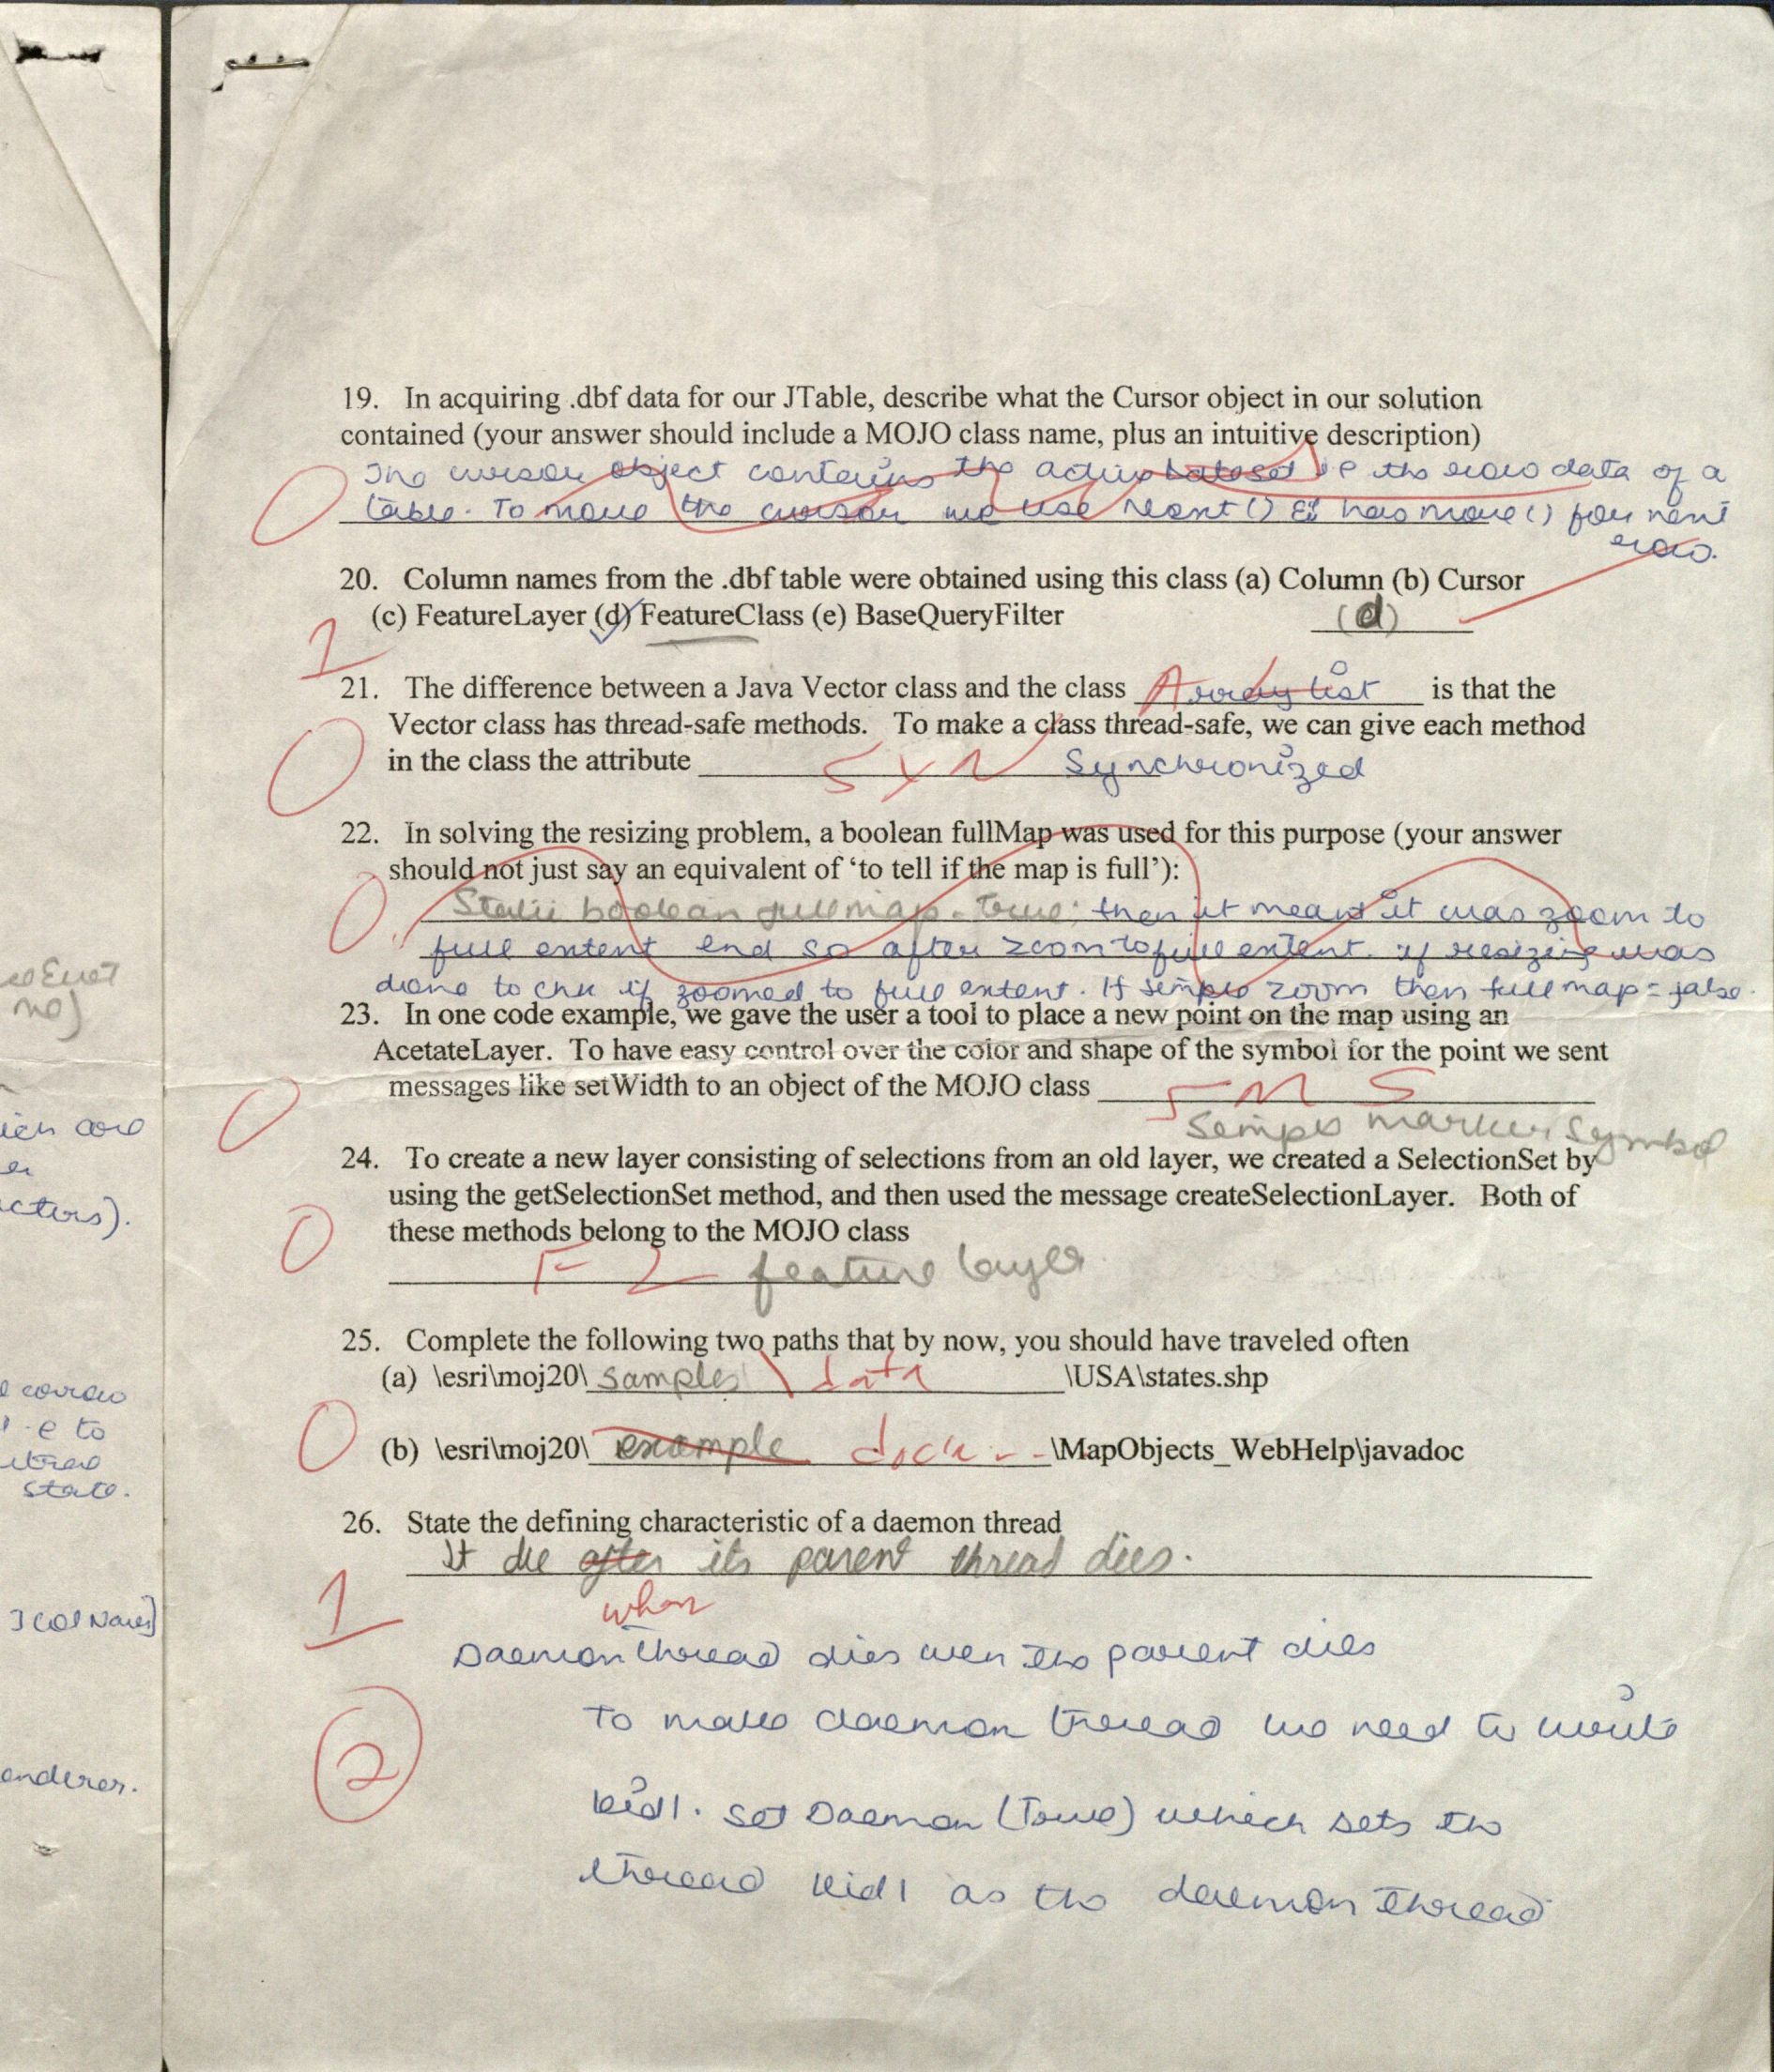 19. In acquiring .dbf data for our JTable, describe what the Cursor object in our solution
contained (your answer should include a MOJO class name, plus an intuitive description)
The cursor object contains the active dataset i.e the row data of a
0
table. To move the cursor we use next() & has more() for next
row.
20. Column names from the .dbf table were obtained using this class (a) Column (b) Cursor
(c) FeatureLayer (d) FeatureClass (e) BaseQueryFilter (d)
1
21. The difference between a Java Vector class and the class Array list is that the
Vector class has thread-safe methods. To make a class thread-safe, we can give each method
0
in the class the attribute S Y N Synchronized
22. In solving the resizing problem, a boolean fullMap was used for this purpose (your answer
should not just say an equivalent of ‘to tell if the map is full’):
0
Static boolean fullmap = true; then it meant it was zoom to
full extent and so after zoom to full extent. if resizing was
done to chk if zoomed to full extent. If simple zoom then full map = false.
23. In one code example, we gave the user a tool to place a new point on the map using an
AcetateLayer. To have easy control over the color and shape of the symbol for the point we sent
messages like setWidth to an object of the MOJO class S M S
0
Simple marker Symbol
24. To create a new layer consisting of selections from an old layer, we created a SelectionSet by
using the getSelectionSet method, and then used the message createSelectionLayer. Both of
0
these methods belong to the MOJO class
F L feature layer
25. Complete the following two paths that by now, you should have traveled often
(a) \esri\moj20\ samples \ data \USA\states.shp
0
(b) \esri\moj20\ example \MapObjects_WebHelp\javadoc
26. State the defining characteristic of a daemon thread
It die after its parent thread dies.
1
when
Daemon thread dies wen the parent dies
to make daemon thread we need to write
2
kid1. set Daemon (True) which sets the
thread kid1 as the daemon thread
me)
er
state.
enderer.